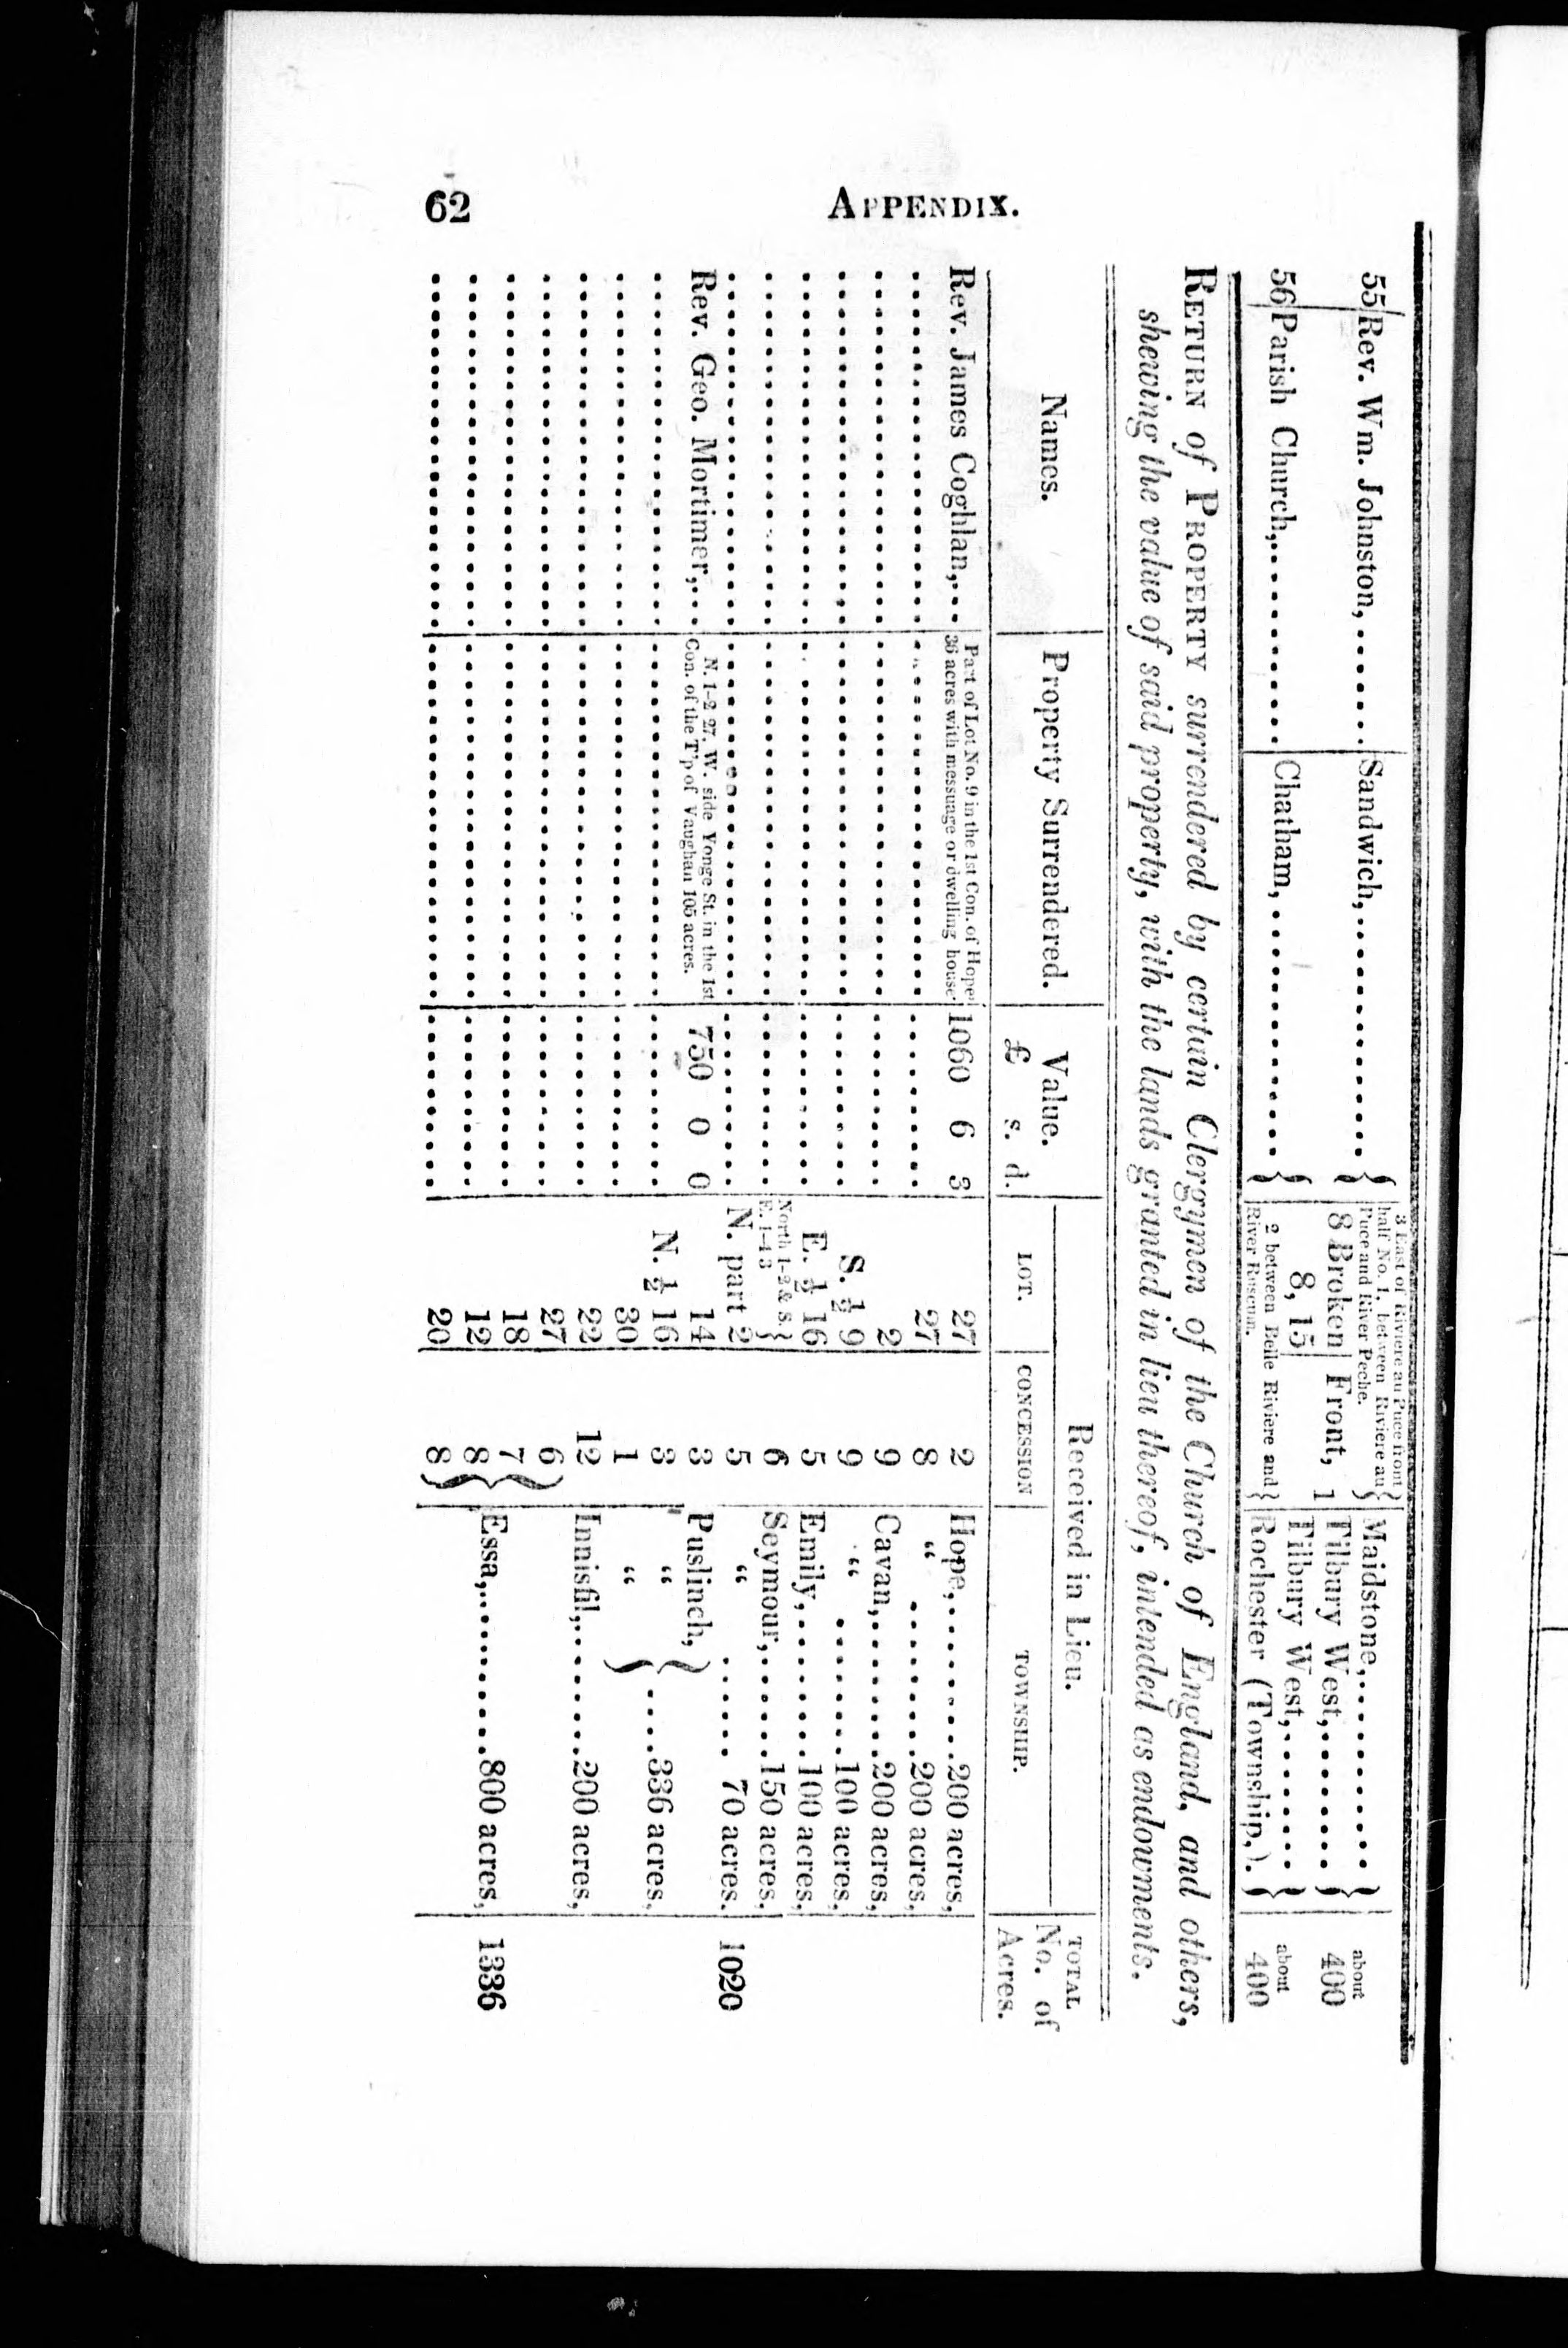 62 APPENDIX.
55 Rev. Wm. Johnston, ....... Sandwich, .............. } 3 East of Riviere au Puce front half No. 1, between Riviere au Puce and River Peche. } Maidstone, ........... } about 400
8 Broken Front, 1 Tilbury West, ........
56 Parish Church, ........... Chatham, .............. } 8, 15 Tilbury West, ....... } about 400
2 between Belle Riviere and River Ruscum. } Rochester (Township,).
RETURN of PROPERTY surrendered by certain Clergymen of the Church of England, and others,
shewing the value of said property, with the lands granted in lieu thereof, intended as endowments.
Names. Property Surrendered. Value. £ s. d. Received in Lieu. TOTAL No. of Acres.
LOT. CONCESSION TOWNSHIP.
Rev. James Coghlan, ... Part of Lot No. 9 in the 1st Con. of Hope 36 acres with messuage or dwelling house 1060 6 3 27 2 Hope, ......... 200 acres,
27 8 " ......... 200 acres,
2 9 Cavan, ......... 200 acres,
S. ½ 9 9 " ........ 100 acres,
E. ½ 16 5 Emily, ......... 100 acres,
North 1-2 & S. E. 1-4 3 } 6 Seymour, ....... 150 acres,
N. part 2 5 " ...... 70 acres. 1020
Rev. Geo. Mortimer, ... N. 1-2 27, W. side Yonge St. in the 1st Con. of the T'p of Vaughan 105 acres. 750 0 0 14 3 Puslinch, }
N. ½ 16 3 " .... 336 acres,
30 1 " }
22 12 Innisfil, ......... 200 acres,
27 6 }
18 7
12 8 Essa, ........... 800 acres, 1336
20 8